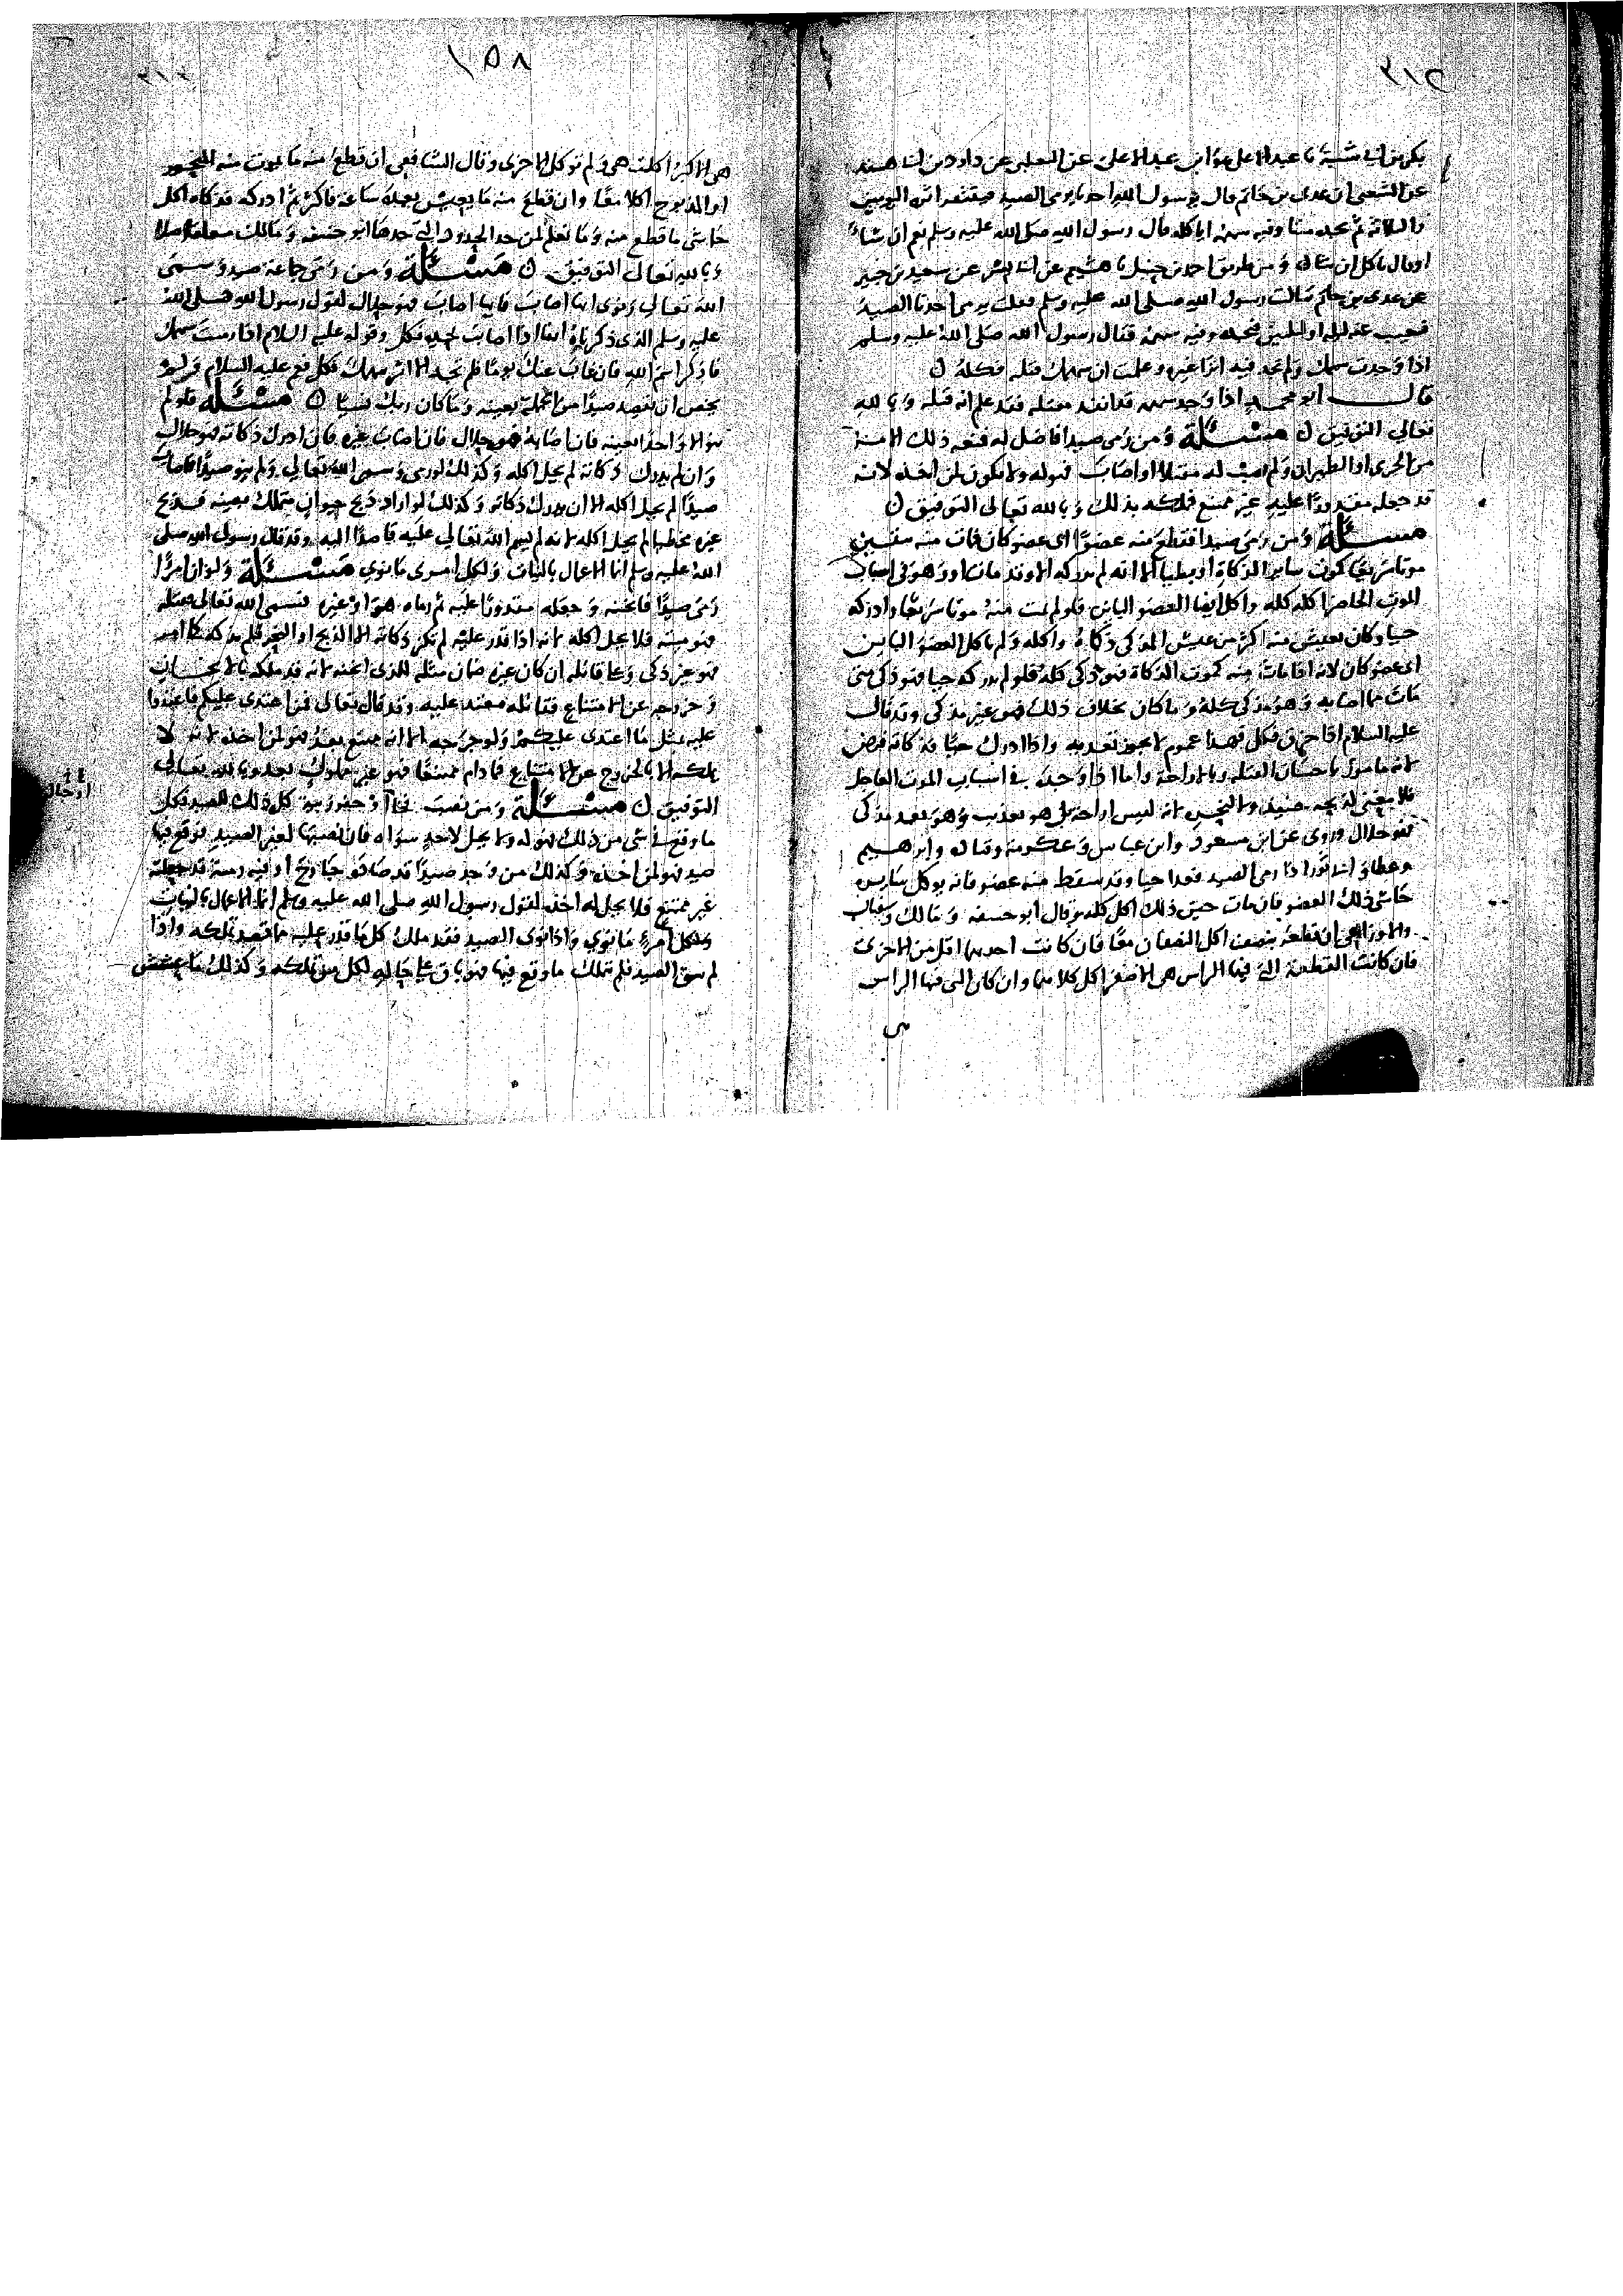 ٣١٥
بكر بن ابي شيبة نا عبد الاعلى هو ابن عبد الاعلى عن الثعلبي عن داود بن ابي هند
عن الشعبي ان عدي بن حاتم قال يرسول الله احدنا يرمي الصيد فيقتفر اثره اليومين
والثلاثة ثم يجده ميتا وفيه سهمه اياكله قال رسول الله صلى الله عليه وسلم نعم ان شاء
او قال ياكل ان شاء ومن طريق احمد بن حنبل نا هشيم عن ابي بشر عن سعيد بن جبير
عن عدي بن حاتم سالت رسول الله صلى الله عليه وسلم فقلت يرمي احدنا الصيد
فيغيب عنه ليلة او ليلتين فيجده وفيه سهمه فقال رسول الله صلى الله عليه وسلم
اذا وجدت سهمك ولم تجد فيه اثر غيره وعلمت ان سهمك قتله فكله ن
قال ابو محمد اذا وجد سهمه قد انفذ مقتله فقد علم انه قتله وبالله
تعالى التوفيق ن مسئلة ومن رمى صيدا فاصاب له فمنعه ذلك الامر
من الجري او الطيران ولم يصب له مقتلا او اصاب فهو له ولا يكون لمن اخذه لانه
قد جعله مقدورا عليه غير ممتنع فملكه بذلك وبالله تعالى التوفيق ن
مسئلة ومن رمى صيدا فقطع منه عضوا اي عضو كان فمات منه بيقين
موتا سريعا كموت ساير الذكاة او بطيا الا انه لم يدركه الا وقد مات او وهو في اسباب
الموت الحاضر اكله كله واكل ايضا العضو البائن فلو لم يمت منه موتا سريعا وادركه
حيا وكان يعيش منه اكثر من عيش المذكى ذكاه واكله ولم ياكل العضو البائن
اي عضو كان لانه اذا مات منه كموت الذكاة فهو ذكي كله فلو لم يدركه حيا فهو ذكي متى
مات مما اصابه وهو مذكى كله وما كان بخلاف ذلك فهو غير مذكى وقد قال
عليه السلام اذا خزق فكل فهذا عموم لا يجوز تعديه واذا ادرك حيا فذكاته فرض
لانه مامور باحسان القتلة وبالاراحة واما اذا وجده في اسباب الموت العاجل
فلا معنى لذبحه حينئذ ولا لنحره لانه ليس اراحة بل هو تعذيب وهو بعد مذكى
فهو حلال وروي عن ابن مسعود وابن عباس وعكرمة وقتادة وابراهيم
وعطا وابي ثور اذا رمى الصيد فغدا حيا وقد سقط منه عضو فانه يوكل سايره
حاشى ذلك العضو فان مات حين ذلك اكل كله وقال ابو حنيفة ومالك وسفيان
والاوزاعي ان قطعه بنصفين اكل النصفان معا فان كانت احديهما اقل من الاخرى
فان كانت القطعة التي فيها الراس هي الاصغر اكل كلاهما وان كان التي فيها الراس
هي
١٥٨
هي الاكبر اكلت هي ولم توكل الاخرى وقال الشافعي ان قطع منه ما يموت منه المنحور
او المذبوح اكلا معا وان قطع منه ما يعيش بعده ساعة فاكثر ثم ادركه فذكاه اكل
حاشى ما قطع منه وما نعلم لمن حد الحدود التي حدها ابو حنيفة ومالك متعلقا اصلا
وبالله تعالى التوفيق ن مسئلة ومن رمى جماعة صيد وسمى
الله تعالى ونوى ايها اصاب فايها اصاب فهو حلال لقول رسول الله صلى الله
عليه وسلم الذي ذكرناه انفا اذا اصاب بحده فكل وقوله عليه السلام اذا رميت بسهمك
فاذكر اسم الله فان غاب عنك يوما فلم تجد الا اثر سهمك فكل فعم عليه السلام ولم
يخص ان يقصد صيدا من الجملة بعينه وما كان ربك نسيا ن مسئلة فلو لم
ينو الا واحدا بعينه فان اصابه فهو حلال فان اصاب غيره فان ادرك ذكاته فهو حلال
وان لم يدرك ذكاته لم يحل اكله وكذلك لو رمى وسمى الله تعالى ولم ينو صيدا فاصاب
صيدا لم يحل اكله الا ان يدرك ذكاته وكذلك لو اراد ذبح حيوان متملك بعينه فذبح
غيره مخطيا لم يحل اكله لانه لم يسم الله تعالى عليه قاصدا اليه وقد قال رسول الله صلى
الله عليه وسلم انما الاعمال بالنيات ولكل امري ما نوى مسئلة ولو ان امرا
رمى صيدا فاثخنه وجعله مقدورا عليه ثم رماه هو او غيره فسمى الله تعالى فقتله
فهو ميتة فلا يحل اكله لانه اذا قدر عليه لم تكن ذكاته الا الذبح او النحر فلم يذكه كما امر
فهو غير ذكي وعلى قاتله ان كان غيره ضمان مثله للذي اثخنه لانه قد ملكه بالاثخان
وخروجه عن الامتناع فقاتله معتد عليه وقد قال تعالى فمن اعتدى عليكم فاعتدوا
عليه بمثل ما اعتدى عليكم ولو جرحه الا انه ممتنع بعد فهو لمن اخذه لانه لا
يملكه الا بالخروج عن الامتناع فما دام ممتنعا فهو غير مملوك بعد وبالله تعالى
التوفيق ن مسئلة ومن نصب فخا او حفر زبية كل ذلك للصيد فكل
ما وقع في شي من ذلك فهو له ولا يحل لاحد سواه فان نصبها لغير الصيد فوقع فيها
صيد فهو لمن اخذه وكذلك من وجد صيدا قد صاده جارح او فيه رمية قد جعلته
غير ممتنع فلا يحل له اخذه لقول رسول الله صلى الله عليه وسلم انما الاعمال بالنيات
ولكل امرئ ما نوى واذا نوى الصيد فقد ملك كل ما قدر عليه مما قصد تملكه واذا
لم ينو الصيد فلم يتملك ما وقع فيها فهو باق على حاله لكل من تملكه وكذلك ما عشش